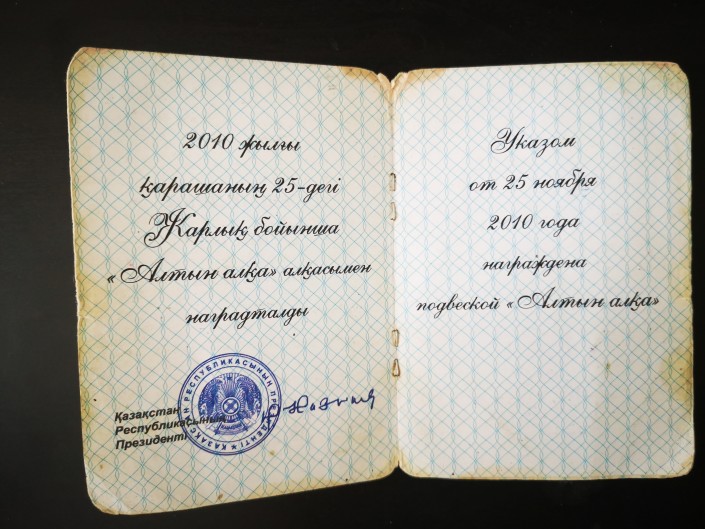 2010 жылғы
қарашаның 25-дегі
Жарлық бойынша
«Алтын алқа» алқасымен
наградталды
Қазақстан
Республикасының
Президенті
ҚАЗАҚСТАН РЕСПУБЛИКАСЫНЫҢ ПРЕЗИДЕНТІ
Указом
от 25 ноября
2010 года
награждена
подвеской «Алтын алқа»